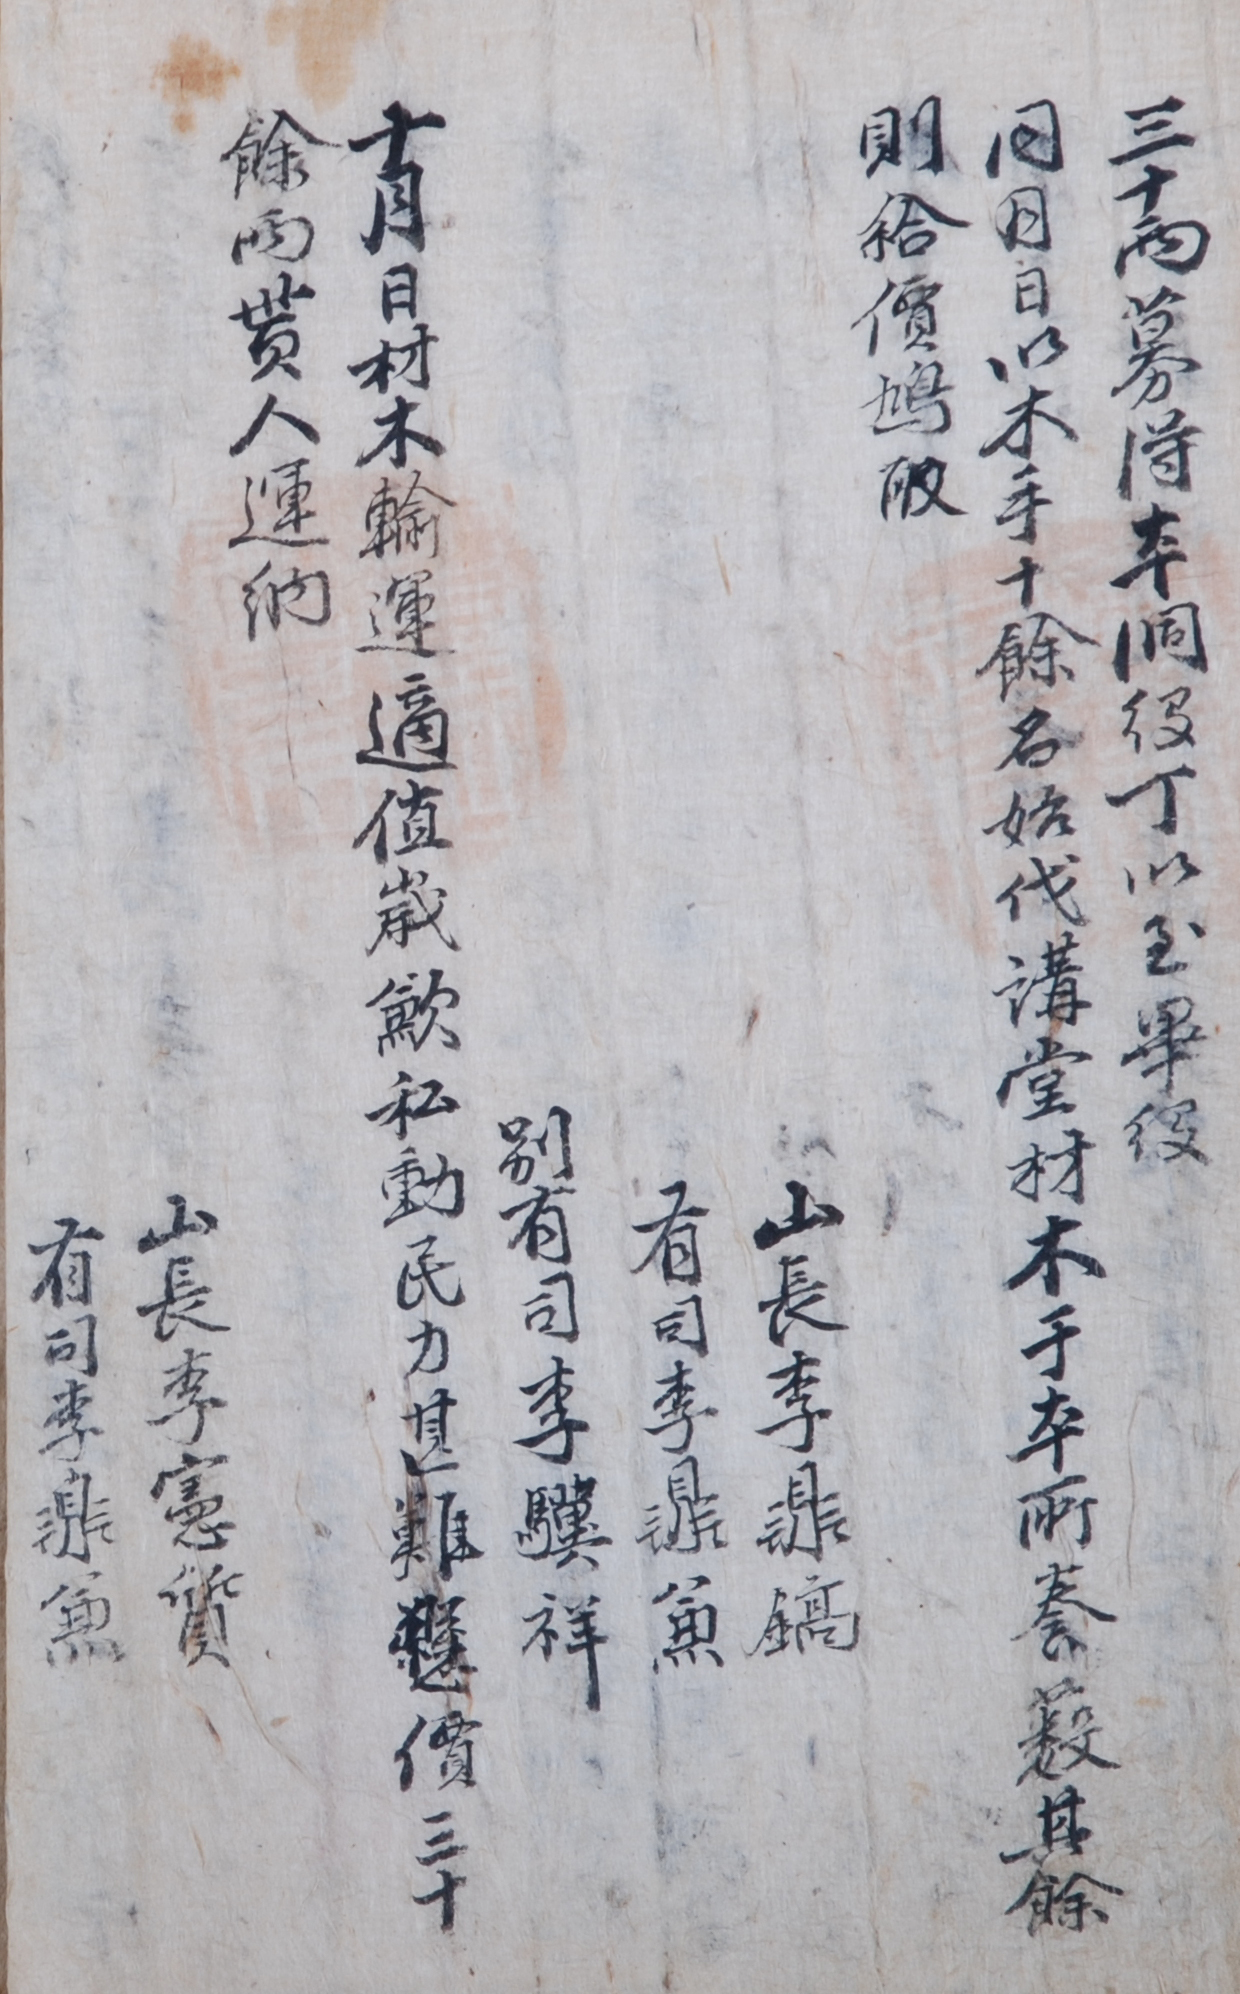 三十兩募得本洞役丁以至畢役
同月日以木手十餘名始伐講堂材木于本所養藪其餘
則給價鳩取
山長李鼎鎬
有司李鼎兼
別有司李驥祥
十月日材木輸運適値歲歉私動民力甚難懸價三十
餘兩貰人運納
山長李憲質
有司李鼎兼